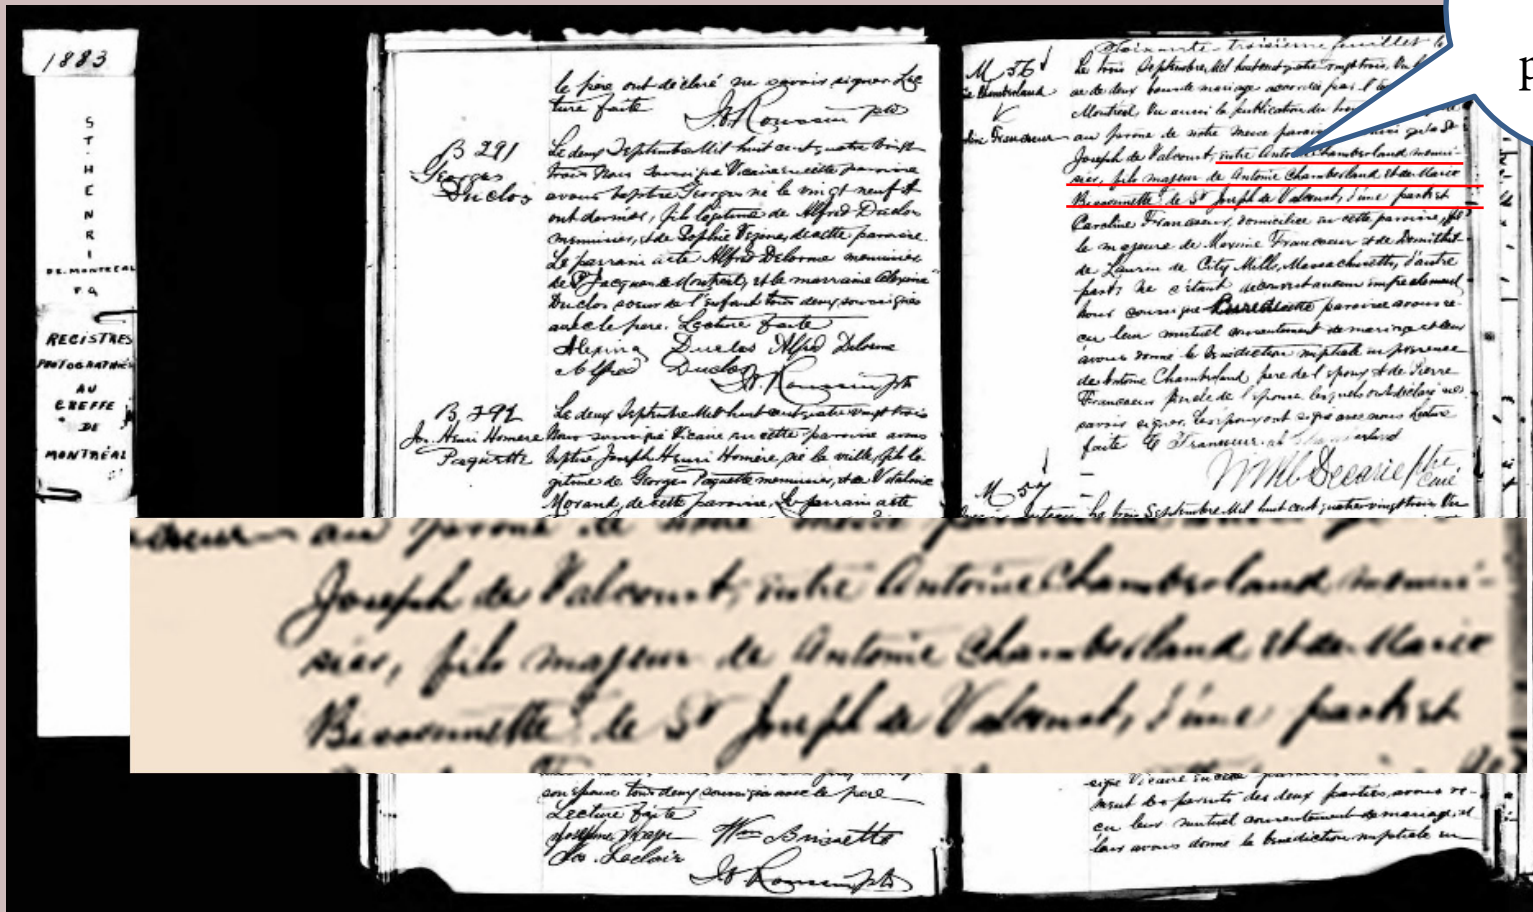 1883
ST. HENRI
DE MONTREAL
P Q
REGISTRES
PHOTOGRAPHIÉS
AU
GREFFE
DE
MONTRÉAL
le père ont déclaré ne savoir signer Lec
ture faite
B 291
Georges
Duclos
Le deux Septembre Mil huit cent quatre vingt
trois Nous soussigné Vicaire en cette paroisse
avons baptisé Georges né le vingt neuf A
out dernier, fils légitime de Alfred Duclos
menuisier, et de Sophie Vézina, de cette paroisse.
Le parrain a été Alfred Delorme menuisier
de St Jacques de Montréal, et la marraine Alexina
Duclos soeur de l'enfant tous deux soussignés
avec le père. Lecture faite
Alexina Duclos Alfred Delorme
Alfred Duclos
B. 292
Jos. Henri Homère
Paquette
Le deux Septembre Mil huit cent quatre vingt trois
Nous soussigné Vicaire en cette paroisse avons
baptisé Joseph Henri Homère, né la veille, fils lé
gitime de Georges Paquette menuisier, et de
Morand, de cette paroisse. Le parrain a été
son épouse tous deux soussignés avec le père
Lecture faite
Wm Brissette
Jos. Leclair
Soixante-troisième feuillet
M 56
Chamberland
Francoeur
Le trois Septembre Mil huit cent quatre vingt trois, Vu
de deux bans de mariage accordée par
Montréal, Vu aussi la publication du
au prône de notre messe
Joseph de Valcourt, entre Antoine Chamberland menui-
sier, fils majeur de Antoine Chamberland et de Marie
Bissonnette de St Joseph de Valcourt, d'une part et
Caroline Francoeur, domiciliée en cette paroisse, fil
le majeure de Maxime Francoeur et de Domithilde
de Laurin de City Mills, Massachusetts, d'autre
part; ne s'étant découvert aucun empêchement
nous soussigné paroisse avons re-
çu leur mutuel consentement de mariage et leur
avons donné la bénédiction nuptiale en présence
de Antoine Chamberland père de l'époux et de Pierre
Francoeur de l'épouse lesquels ont déclaré ne
savoir signer. Les époux ont signé avec nous Lecture
faite C Francoeur
M 57
Le trois Septembre Mil huit cent quatre vingt trois, Vu
p
au prône de notre messe
Joseph de Valcourt, entre Antoine Chamberland menui-
sier, fils majeur de Antoine Chamberland et de Marie
Bissonnette de St Joseph de Valcourt, d'une part et
ment des parents des deux parties, avons re-
çu leur mutuel consentement de mariage, et
leur avons donné la bénédiction nuptiale en